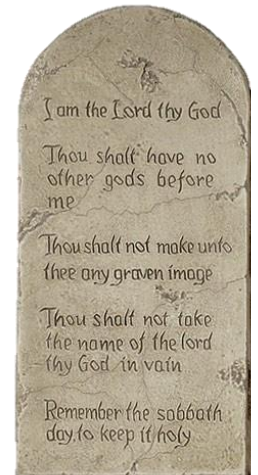 I am the Lord thy God
Thou shalt have no
other gods before
me
Thou shalt not make unto
thee any graven image
Thou shalt not take
the name of the lord
thy God in vain
Remember the sabbath
day, to keep it holy